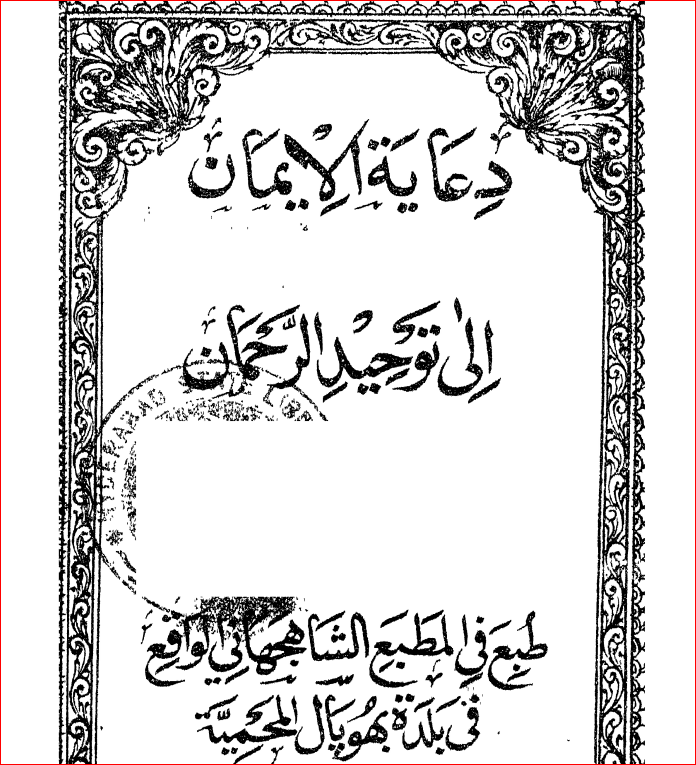 دِعَايَةُ الْاِيْمَان
اِلٰى تَوْحِيْدِ الرَّحْمَان
HYDERABAD
طُبِعَ فِي الْمَطْبَعِ الشَّاهْجَهَانِي الْوَاقِعِ
فِي بَلْدَةِ بَهُوْپَال الْمَحْمِيَّة